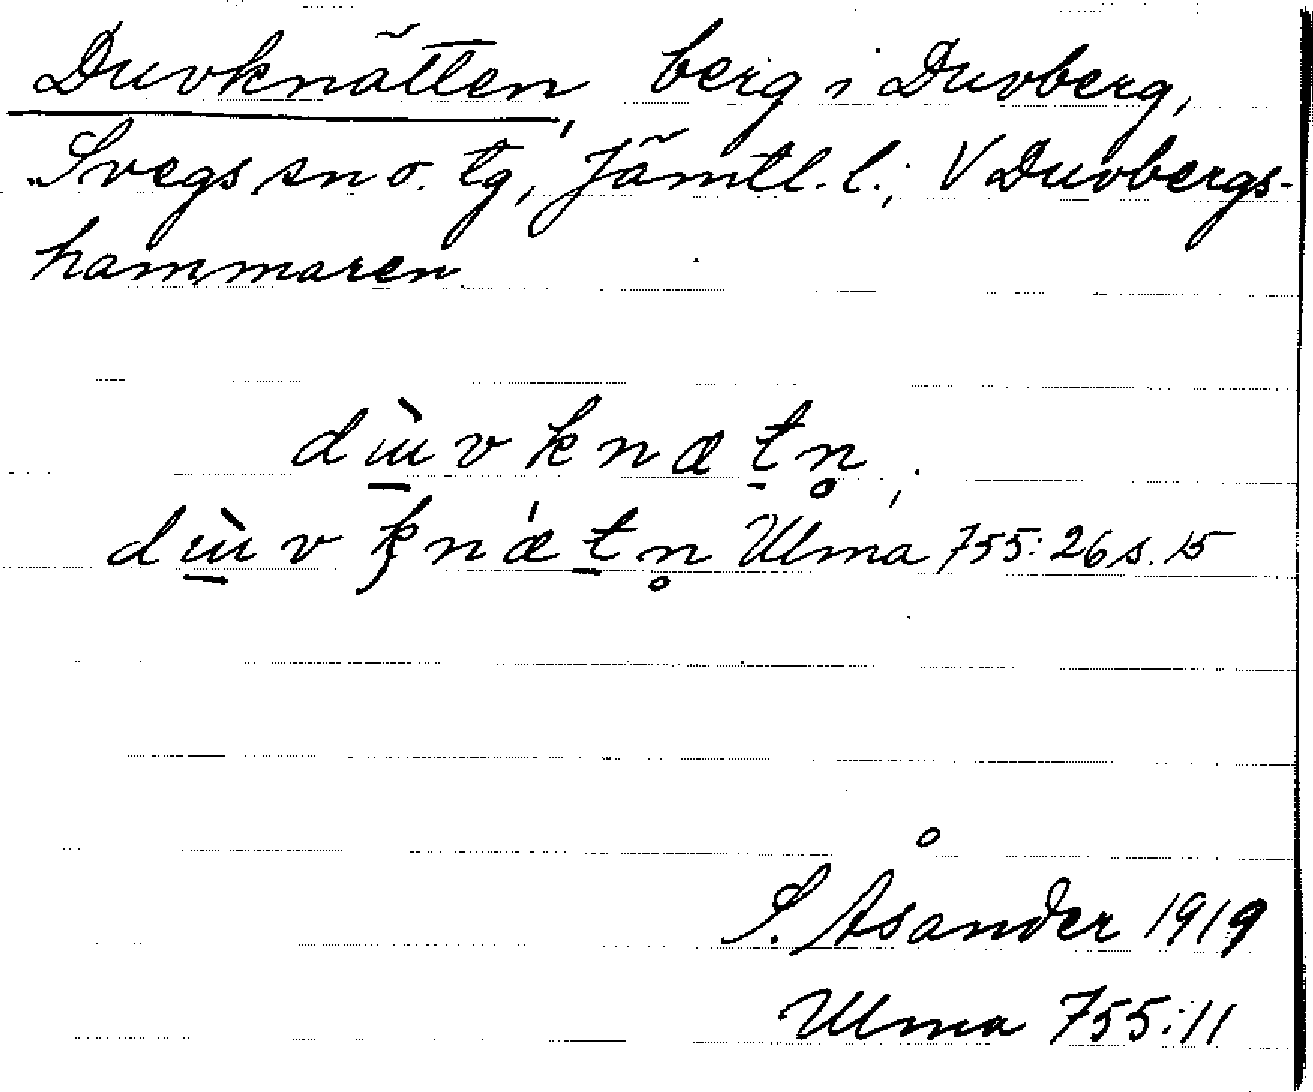 Duvknätten, berg i Duvberg,
Svegs sn o. tg, Jämtl. l.; V Duvbergs-
hammaren.
dɯ̀vknætn̥,
dɯ̀vknǽtn̥ Ulma 755:26 s. 15
S. Åsander 1919
Ulma 755:11